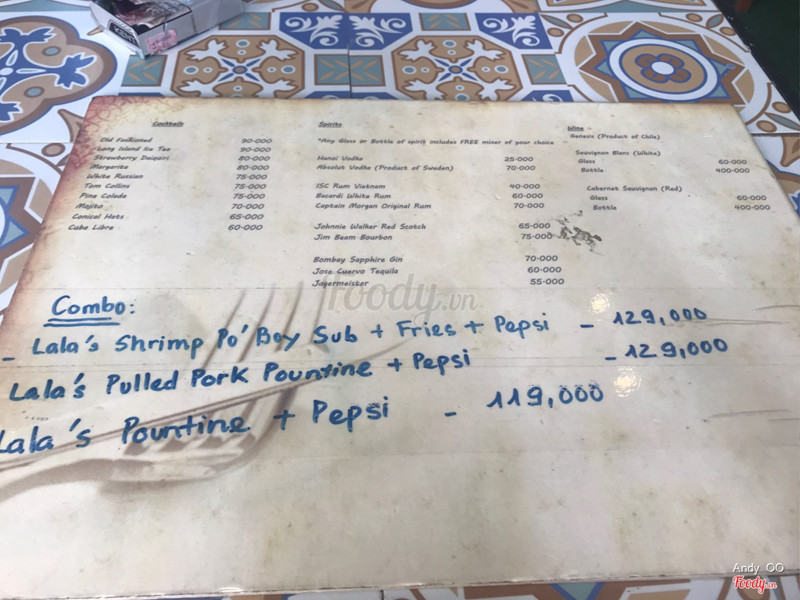 Cocktails
Old Fashioned 90-000
Long Island Ice Tea 90-000
Strawberry Daiquiri 80-000
Margarita 80-000
White Russian 75-000
Tom Collins 75-000
Pina Colada 75-000
Mojito 70-000
Conical Hats 65-000
Cuba Libre 60-000
Spirits
*Any Glass or Bottle of spirit includes FREE mixer of your choice
Hanoi Vodka 25-000
Absolut Vodka (Product of Sweden) 70-000
ISC Rum Vietnam 40-000
Bacardi White Rum 60-000
Captain Morgan Original Rum 70-000
Johnnie Walker Red Scotch 65-000
Jim Beam Bourbon 75-000
Bombay Sapphire Gin 70-000
Jose Cuervo Tequila 60-000
Jagermeister 55-000
Wine -
Genesis (Product of Chile)
Sauvignon Blanc (White)
Glass 60-000
Bottle 400-000
Cabernet Sauvignon (Red)
Glass 60-000
Bottle 400-000
Foody.vn
Combo:
- Lala's Shrimp Po' Boy Sub + Fries + Pepsi - 129,000
Lala's Pulled Pork Pountine + Pepsi - 129,000
Lala's Pountine + Pepsi - 119,000
Andy OO
Foody.vn